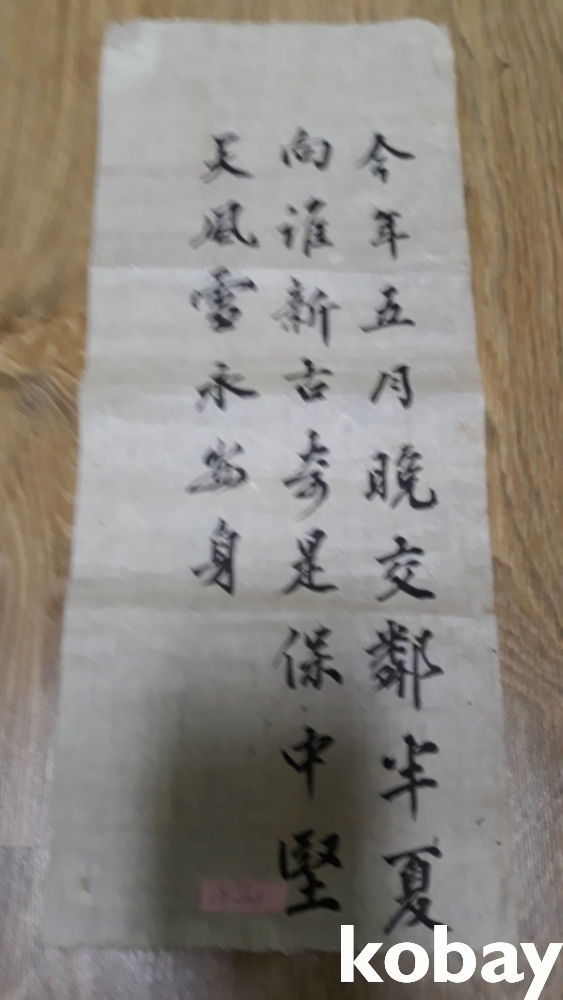 今年五月晚交鄰半夏
向誰新古奇是保中堅
天風雪永安身
kobay